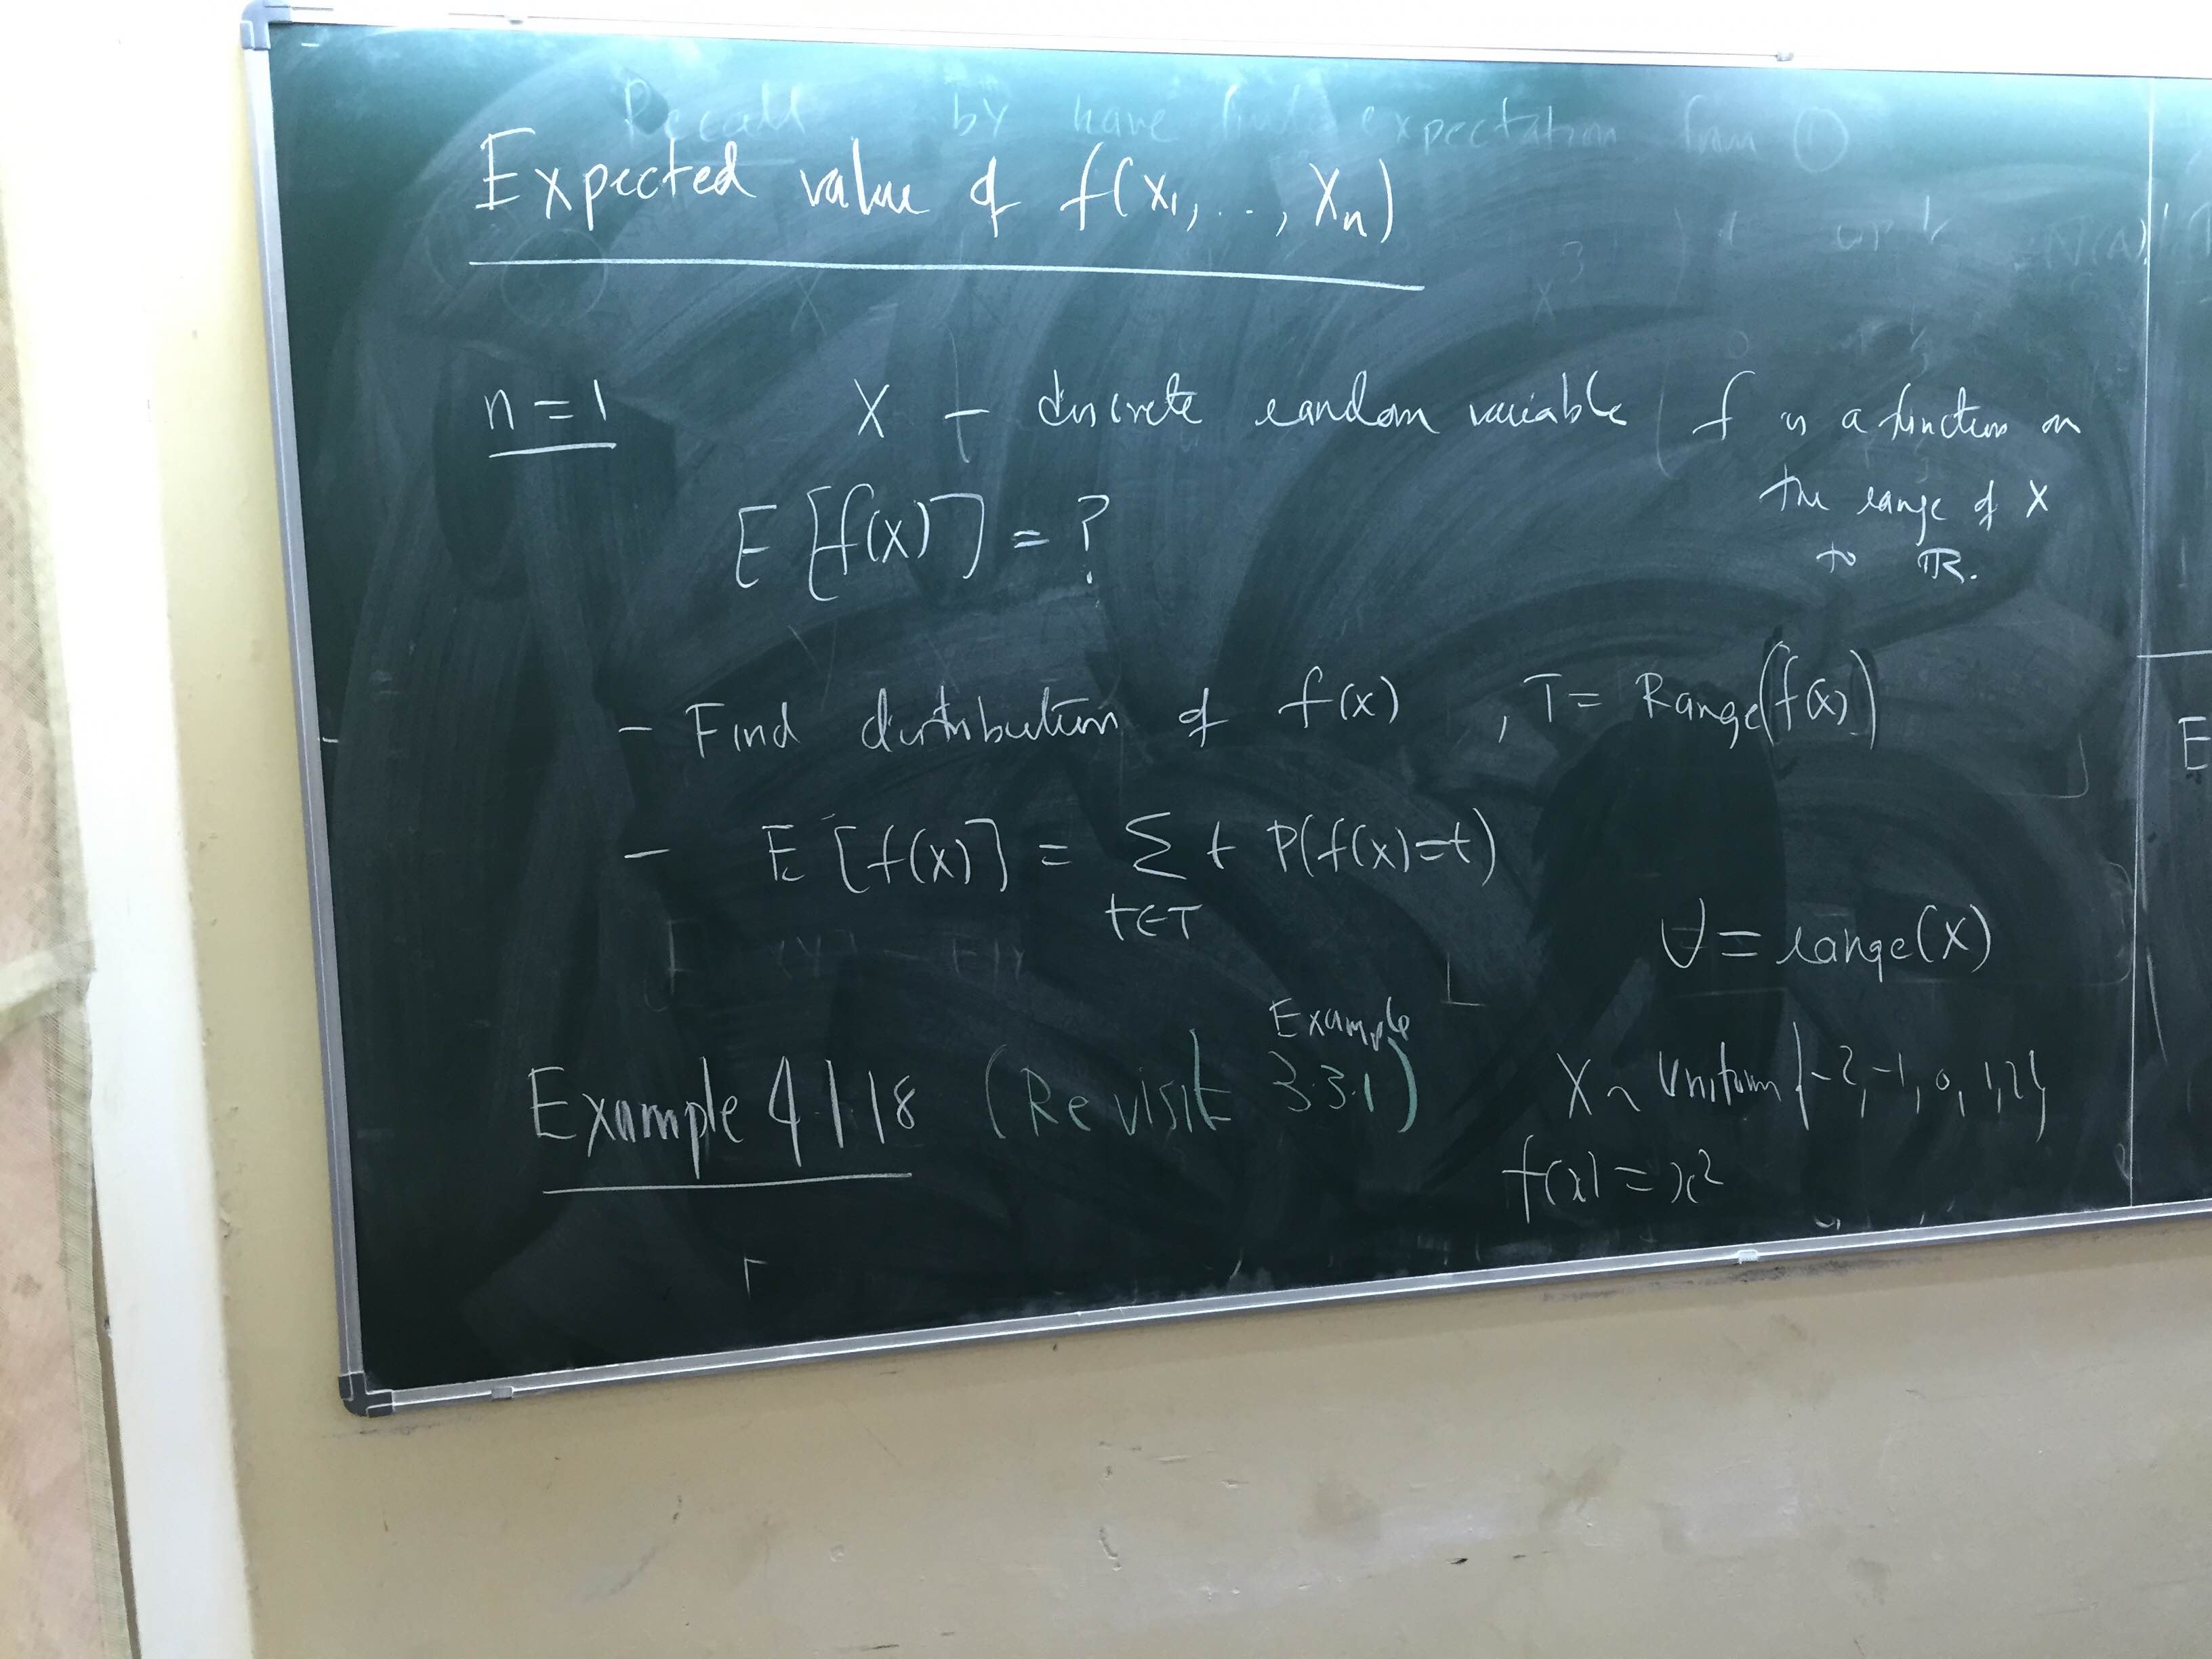 Recall by have find expectation from ①
Expected value of f(X₁, .., Xₙ)
n = 1 X – discrete random variable, f is a function on
the range of X
to ℝ.
E[f(X)] = ?
- Find distribution of f(X) , T = Range(f(X))
- E[f(X)] = Σ t P(f(X)=t)
t∈T
U = range(X)
Example 4.1.18 (Revisit Example 3.3.1) X ~ Uniform{-2, -1, 0, 1, 2}
f(x) = x²
E